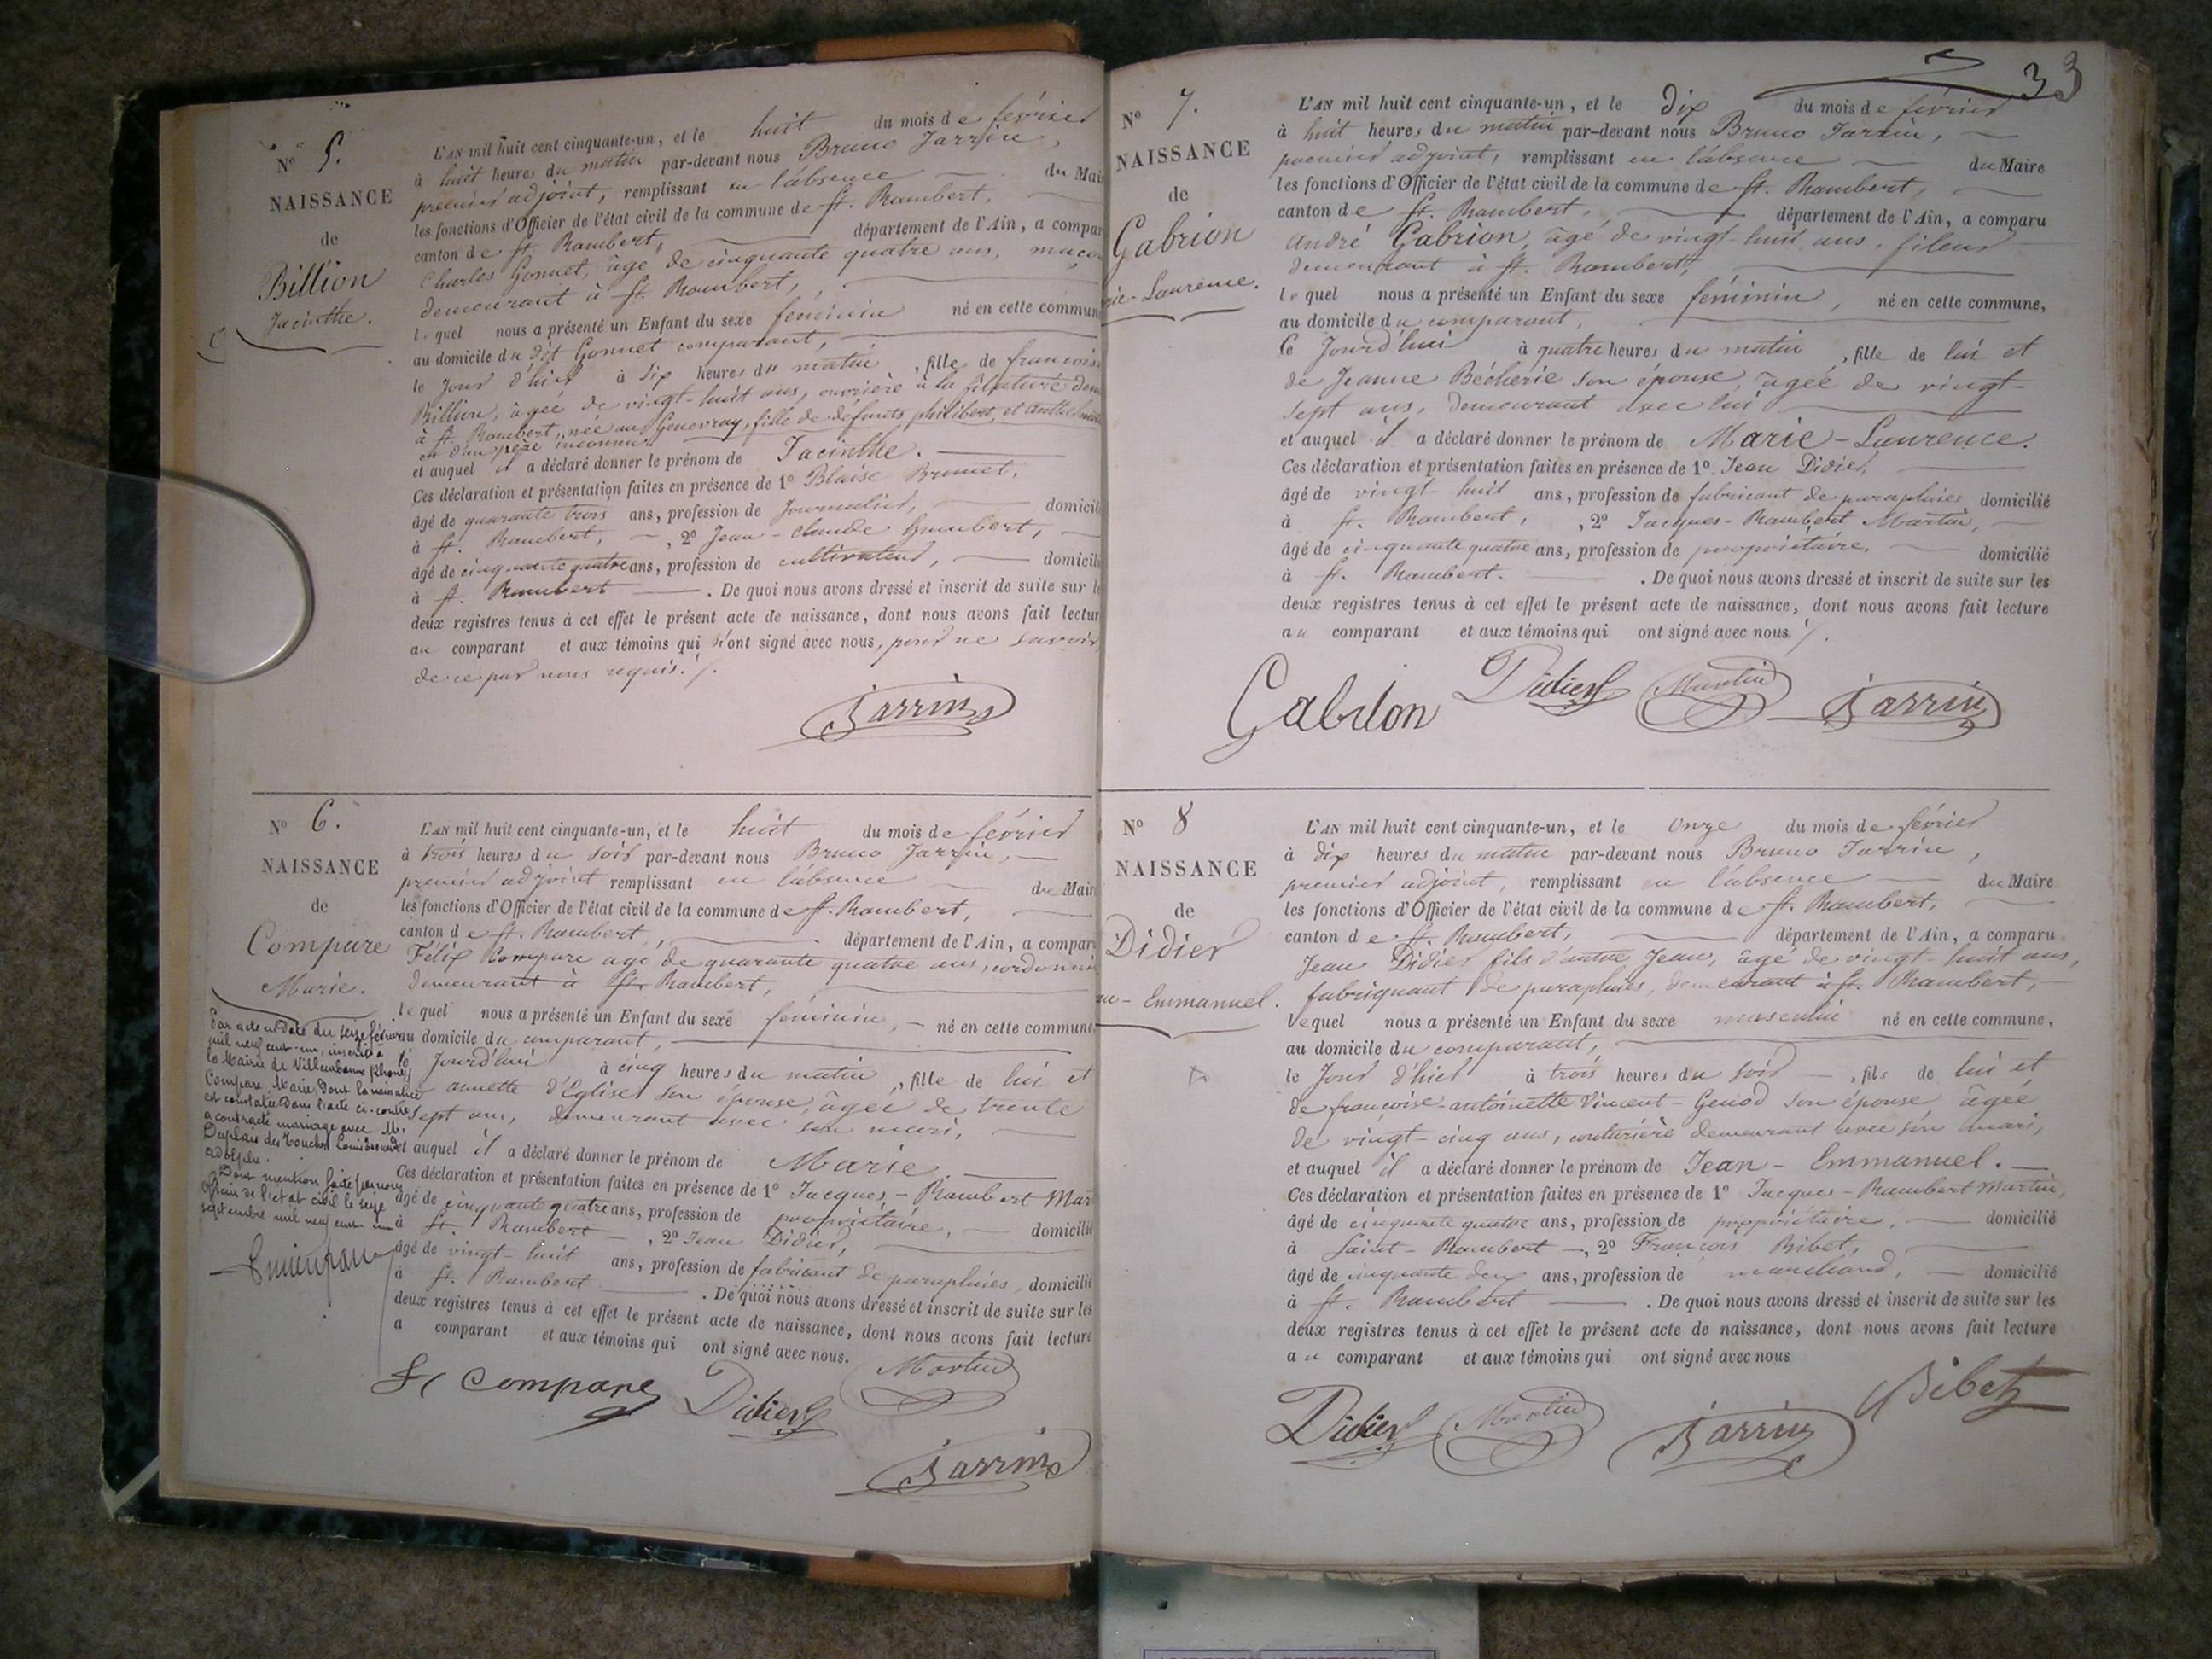 N° 5.
NAISSANCE
de
Billion
Jacinthe.
L'AN mil huit cent cinquante-un, et le huit du mois de février
à huit heures du matin par-devant nous Bruno Jarrin,
premier adjoint, remplissant en l'absence du Mai
les fonctions d'Officier de l'état civil de la commune de St. Rambert,
canton de St. Rambert, département de l'Ain, a compar
Charles Gonnet, âgé de cinquante quatre ans, maço
demeurant à St. Rambert,
lequel nous a présenté un Enfant du sexe féminin né en cette commun
au domicile du dit Gonnet comparant,
le jour d'hier à six heures du matin, fille de françoise
Billion, âgée de vingt-huit ans, ouvrière à la filature dem
à St. Rambert, née au Genevray, fille de défunts philibert, et
et d'un père inconnu
et auquel il a déclaré donner le prénom de Jacinthe.
Ces déclaration et présentation faites en présence de 1° Blaise Brunet,
âgé de quarante trois ans, profession de Journalier, domicili
à St. Rambert, 2° Jean-Claude humbert,
âgé de cinquante quatre ans, profession de cultivateur, domicili
à St. Rambert. De quoi nous avons dressé et inscrit de suite sur le
deux registres tenus à cet effet le présent acte de naissance, dont nous avons fait lectur
au comparant et aux témoins qui n'ont signé avec nous, pour ne savoir
de ce par nous requis./.
Jarrin
N° 6.
NAISSANCE
de
Compare
Marie.
Par acte en date du seize février
mil neuf cent-un, inscrit à
la Mairie de Villeurbanne (Rhône)
Compare, Marie, dont la naissance
est constatée dans l'acte ci-contre
a contracté mariage avec M.
Duplais des Touches Louis
adolphe.
Dont mention faite par nous
officier de l'état civil le seize
septembre mil neuf cent un
L'AN mil huit cent cinquante-un, et le huit du mois de février
à trois heures du soir par-devant nous Bruno Jarrin,
premier adjoint remplissant en l'absence du Mair
les fonctions d'Officier de l'état civil de la commune de St. Rambert,
canton de St. Rambert, département de l'Ain, a compar
Félix Compare âgé de quarante quatre ans, cordonnie
demeurant à St. Rambert,
lequel nous a présenté un Enfant du sexe féminin, né en cette commune,
au domicile du comparant,
le Jourd'hui à cinq heures du matin, fille de lui et
annette d'Eglise son épouse, âgée de trente
sept ans, demeurant avec son mari,
et auquel il a déclaré donner le prénom de Marie
Ces déclaration et présentation faites en présence de 1° Jacques-Rambert Mar
âgé de cinquante quatre ans, profession de propriétaire, domicilié
à St. Rambert, 2° Jean Didier,
âgé de vingt-huit ans, profession de fabricant de parapluies, domicilié
à St. Rambert. De quoi nous avons dressé et inscrit de suite sur les
deux registres tenus à cet effet le présent acte de naissance, dont nous avons fait lecture
a comparant et aux témoins qui ont signé avec nous.
Compare Didier Martin
Jarrin
33
N° 7.
NAISSANCE
de
Gabrion
rie-Laurence.
L'AN mil huit cent cinquante-un, et le dix du mois de février
à huit heures du matin par-devant nous Bruno Jarrin,
premier adjoint, remplissant en l'absence du Maire
les fonctions d'Officier de l'état civil de la commune de St. Rambert,
canton de St. Rambert, département de l'Ain, a comparu
André Gabrion, âgé de vingt-huit ans, fileur
demeurant à St. Rambert,
lequel nous a présenté un Enfant du sexe féminin, né en cette commune,
au domicile du comparant,
le Jourd'hui à quatre heures du matin, fille de lui et
de Jeanne Bécherie son épouse, âgée de vingt-
sept ans, demeurant avec lui
et auquel il a déclaré donner le prénom de Marie-Laurence.
Ces déclaration et présentation faites en présence de 1° Jean Didier,
âgé de vingt huit ans, profession de fabricant de parapluies domicilié
à St. Rambert, 2° Jacques-Rambert Martin,
âgé de cinquante quatre ans, profession de propriétaire, domicilié
à St. Rambert. De quoi nous avons dressé et inscrit de suite sur les
deux registres tenus à cet effet le présent acte de naissance, dont nous avons fait lecture
au comparant et aux témoins qui ont signé avec nous./.
Gabrion Didier Martin Jarrin
N° 8
NAISSANCE
de
Didier
an-Emmanuel.
L'AN mil huit cent cinquante-un, et le onze du mois de février
à dix heures du matin par-devant nous Bruno Jarrin,
premier adjoint, remplissant en l'absence du Maire
les fonctions d'Officier de l'état civil de la commune de St. Rambert,
canton de St. Rambert, département de l'Ain, a comparu
Jean Didier fils d'autre Jean, âgé de vingt-huit ans,
fabriquant de parapluies, demeurant à St. Rambert,
lequel nous a présenté un Enfant du sexe masculin né en cette commune,
au domicile du comparant,
le Jour d'hier à trois heures du soir, fils de lui et
de françoise-antoinette Vincent-Genod son épouse âgée
de vingt-cinq ans, couturière demeurant avec son mari,
et auquel il a déclaré donner le prénom de Jean-Emmanuel.
Ces déclaration et présentation faites en présence de 1° Jacques-Rambert Martin,
âgé de cinquante quatre ans, profession de propriétaire, domicilié
à Saint-Rambert, 2° François Bibet,
âgé de cinquante deux ans, profession de marchand, domicilié
à St. Rambert. De quoi nous avons dressé et inscrit de suite sur les
deux registres tenus à cet effet le présent acte de naissance, dont nous avons fait lecture
au comparant et aux témoins qui ont signé avec nous
Didier Martin Jarrin Bibet